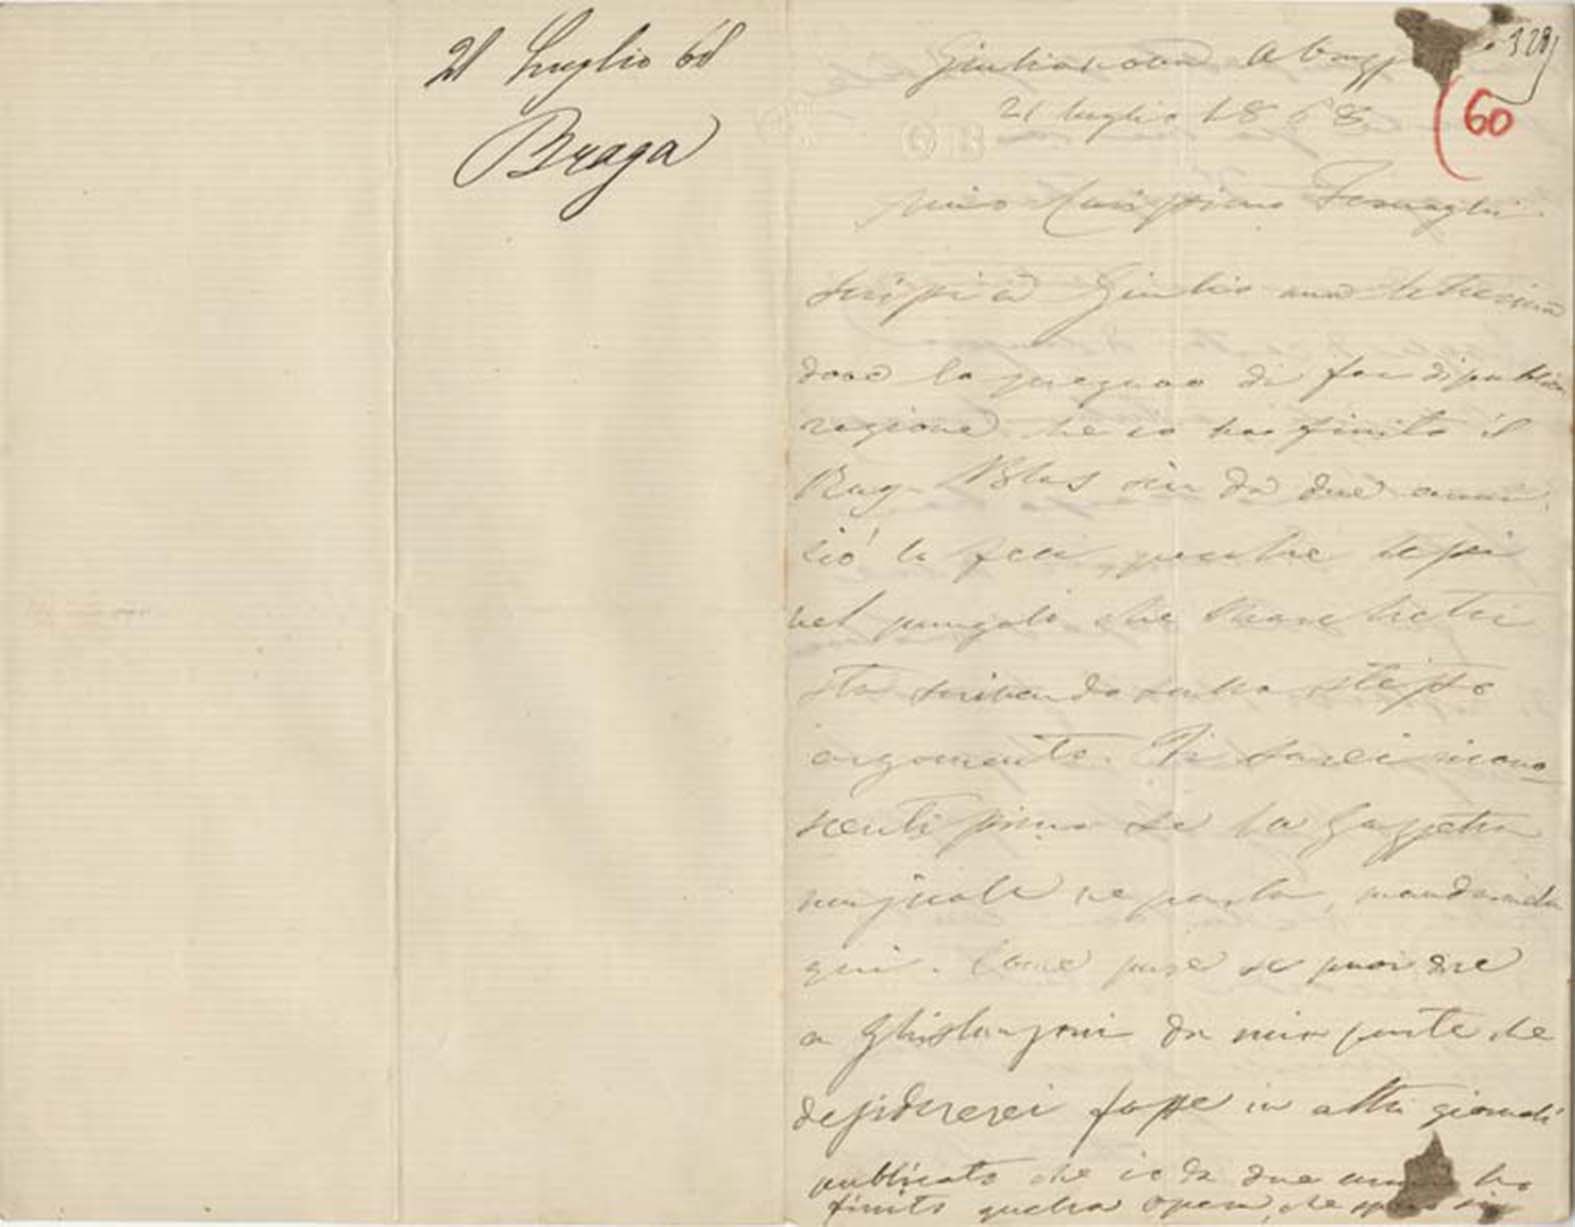 21 Luglio 68
Braga
Giulianova Abruzz
328
21 luglio 1868
(60
mio Carissimo
Scrissi a Giulio una letterina
dove lo pregavo di far di publica
ragione che io ho finito il
Ruy-Blas sin da due anni,
ciò lo feci, perchè lessi
nel pungolo che Marchetti
sta scrivendo sullo stesso
argomento. Ti sarei ricono
scentissimo se la Gazzetta
musicale ne parla, mandamela
qui. Come pure se puoi dire
a Ghislanzoni da mia parte che
desidererei fosse in altri giornali
publicato che io da due anni ho
finito quella opera, che